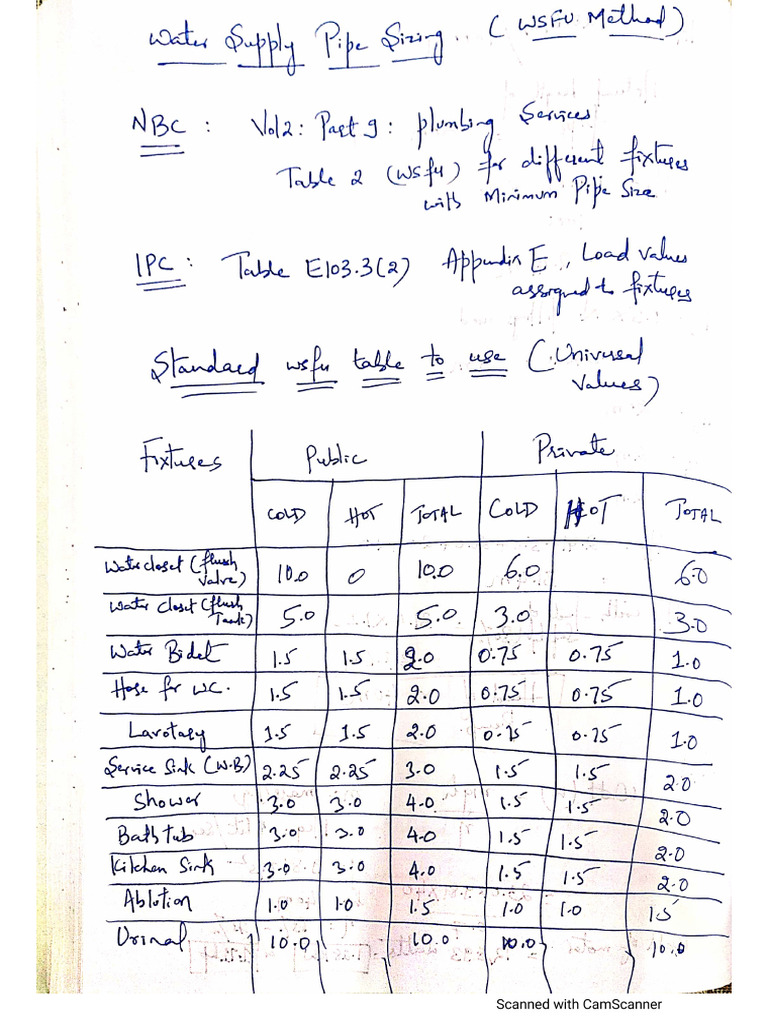 Water Supply Pipe Sizing.. (WSFU Method)
NBC : Vol2: Part 9: plumbing Services
Table 2 (wsfu) for different fixtures
with Minimum Pipe Size
IPC : Table E103.3(2) Appendix E, Load values
assigned to fixtures
Standard wsfu table to use (Universal
Values)
Fixtures Public Private
COLD HOT TOTAL COLD HOT TOTAL
Water closet (flush valve) 10.0 0 10.0 6.0 6.0
Water closet (flush Tank) 5.0 5.0 3.0 3.0
Water Bidet 1.5 1.5 2.0 0.75 0.75 1.0
Hose for WC. 1.5 1.5 2.0 0.75 0.75 1.0
Lavotary 1.5 1.5 2.0 0.75 0.75 1.0
Service Sink (W.B) 2.25 2.25 3.0 1.5 1.5 2.0
Shower 3.0 3.0 4.0 1.5 1.5 2.0
Bath tub 3.0 3.0 4.0 1.5 1.5 2.0
Kitchen Sink 3.0 3.0 4.0 1.5 1.5 2.0
Ablotion 1.0 1.0 1.5 1.0 1.0 1.5
Urinal 10.0 10.0 10.0 10.0
Scanned with CamScanner